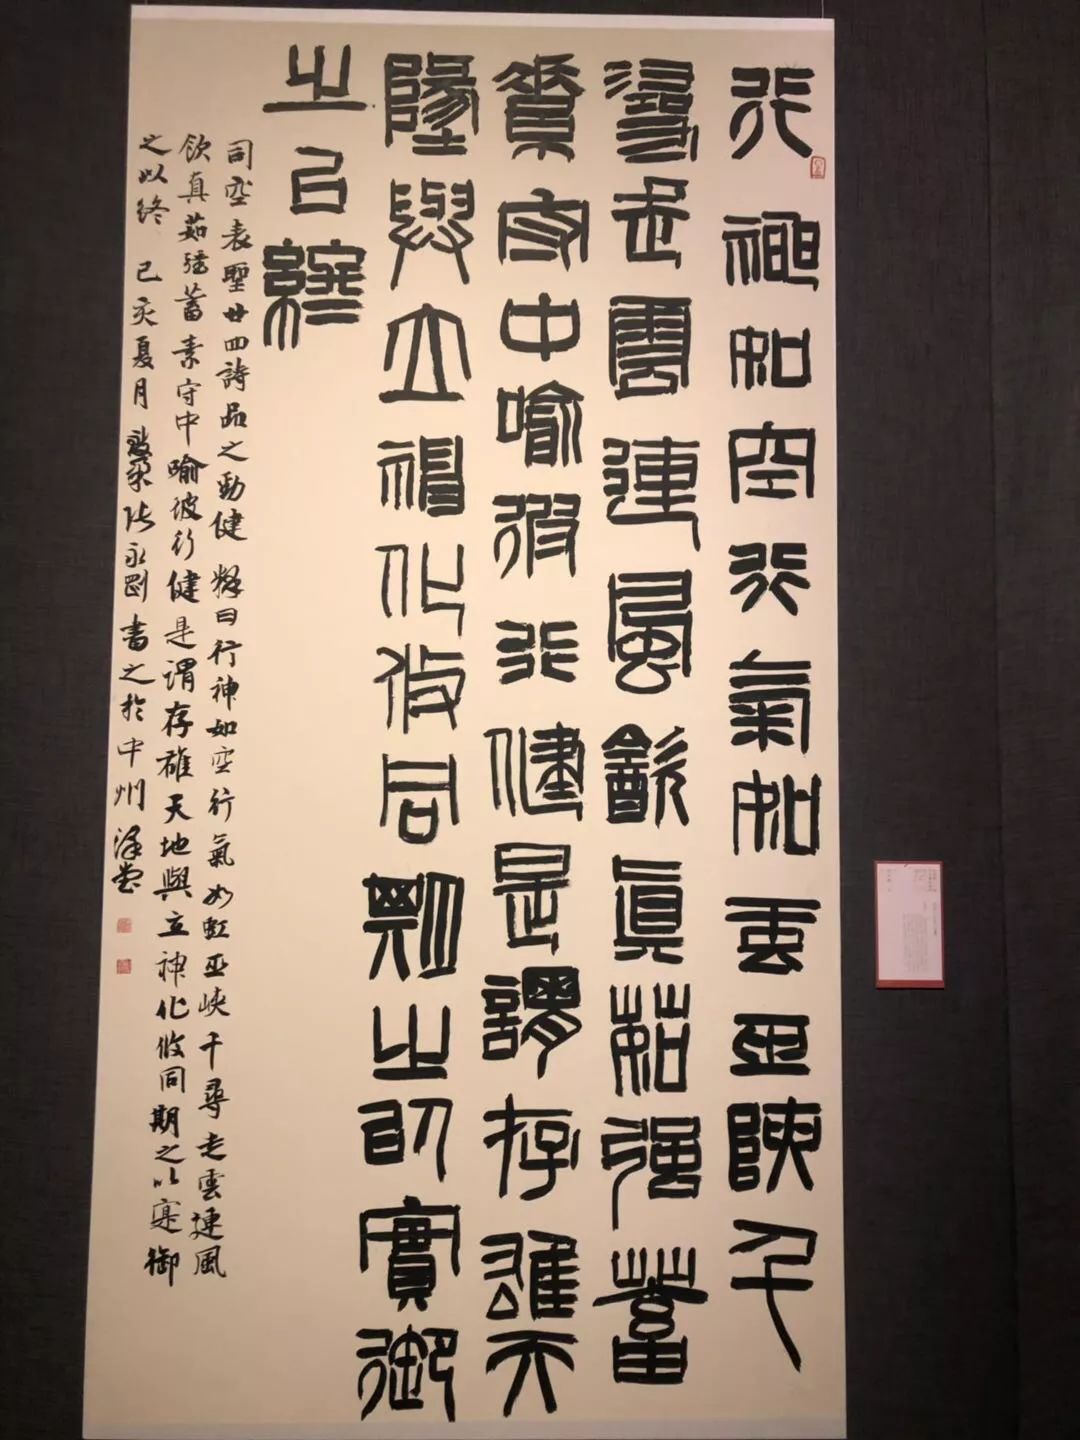 行神如空行氣如虹巫峽千
尋走雲連風飲真茹強蓄
素守中喻彼行健是謂存雄天
地與立神化攸同期之以實御
之以終
司空表聖廿四詩品之勁健 釋曰行神如空行氣如虹巫峽千尋走雲連風
飲真茹強蓄素守中喻彼行健是謂存雄天地與立神化攸同期之以寔御
之以終 己亥夏月 張永剛書之於中州